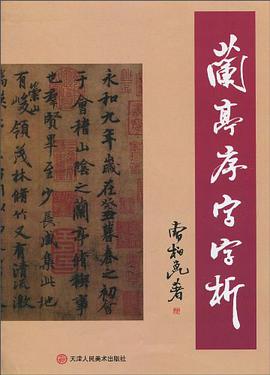 蘭亭序字字析
曹柏崑著
永和九年歲在癸丑暮春之初會
于會稽山陰之蘭亭脩禊事
也群賢畢至少長咸集此地
有崇山峻領茂林脩竹又有清流激
天津人民美术出版社